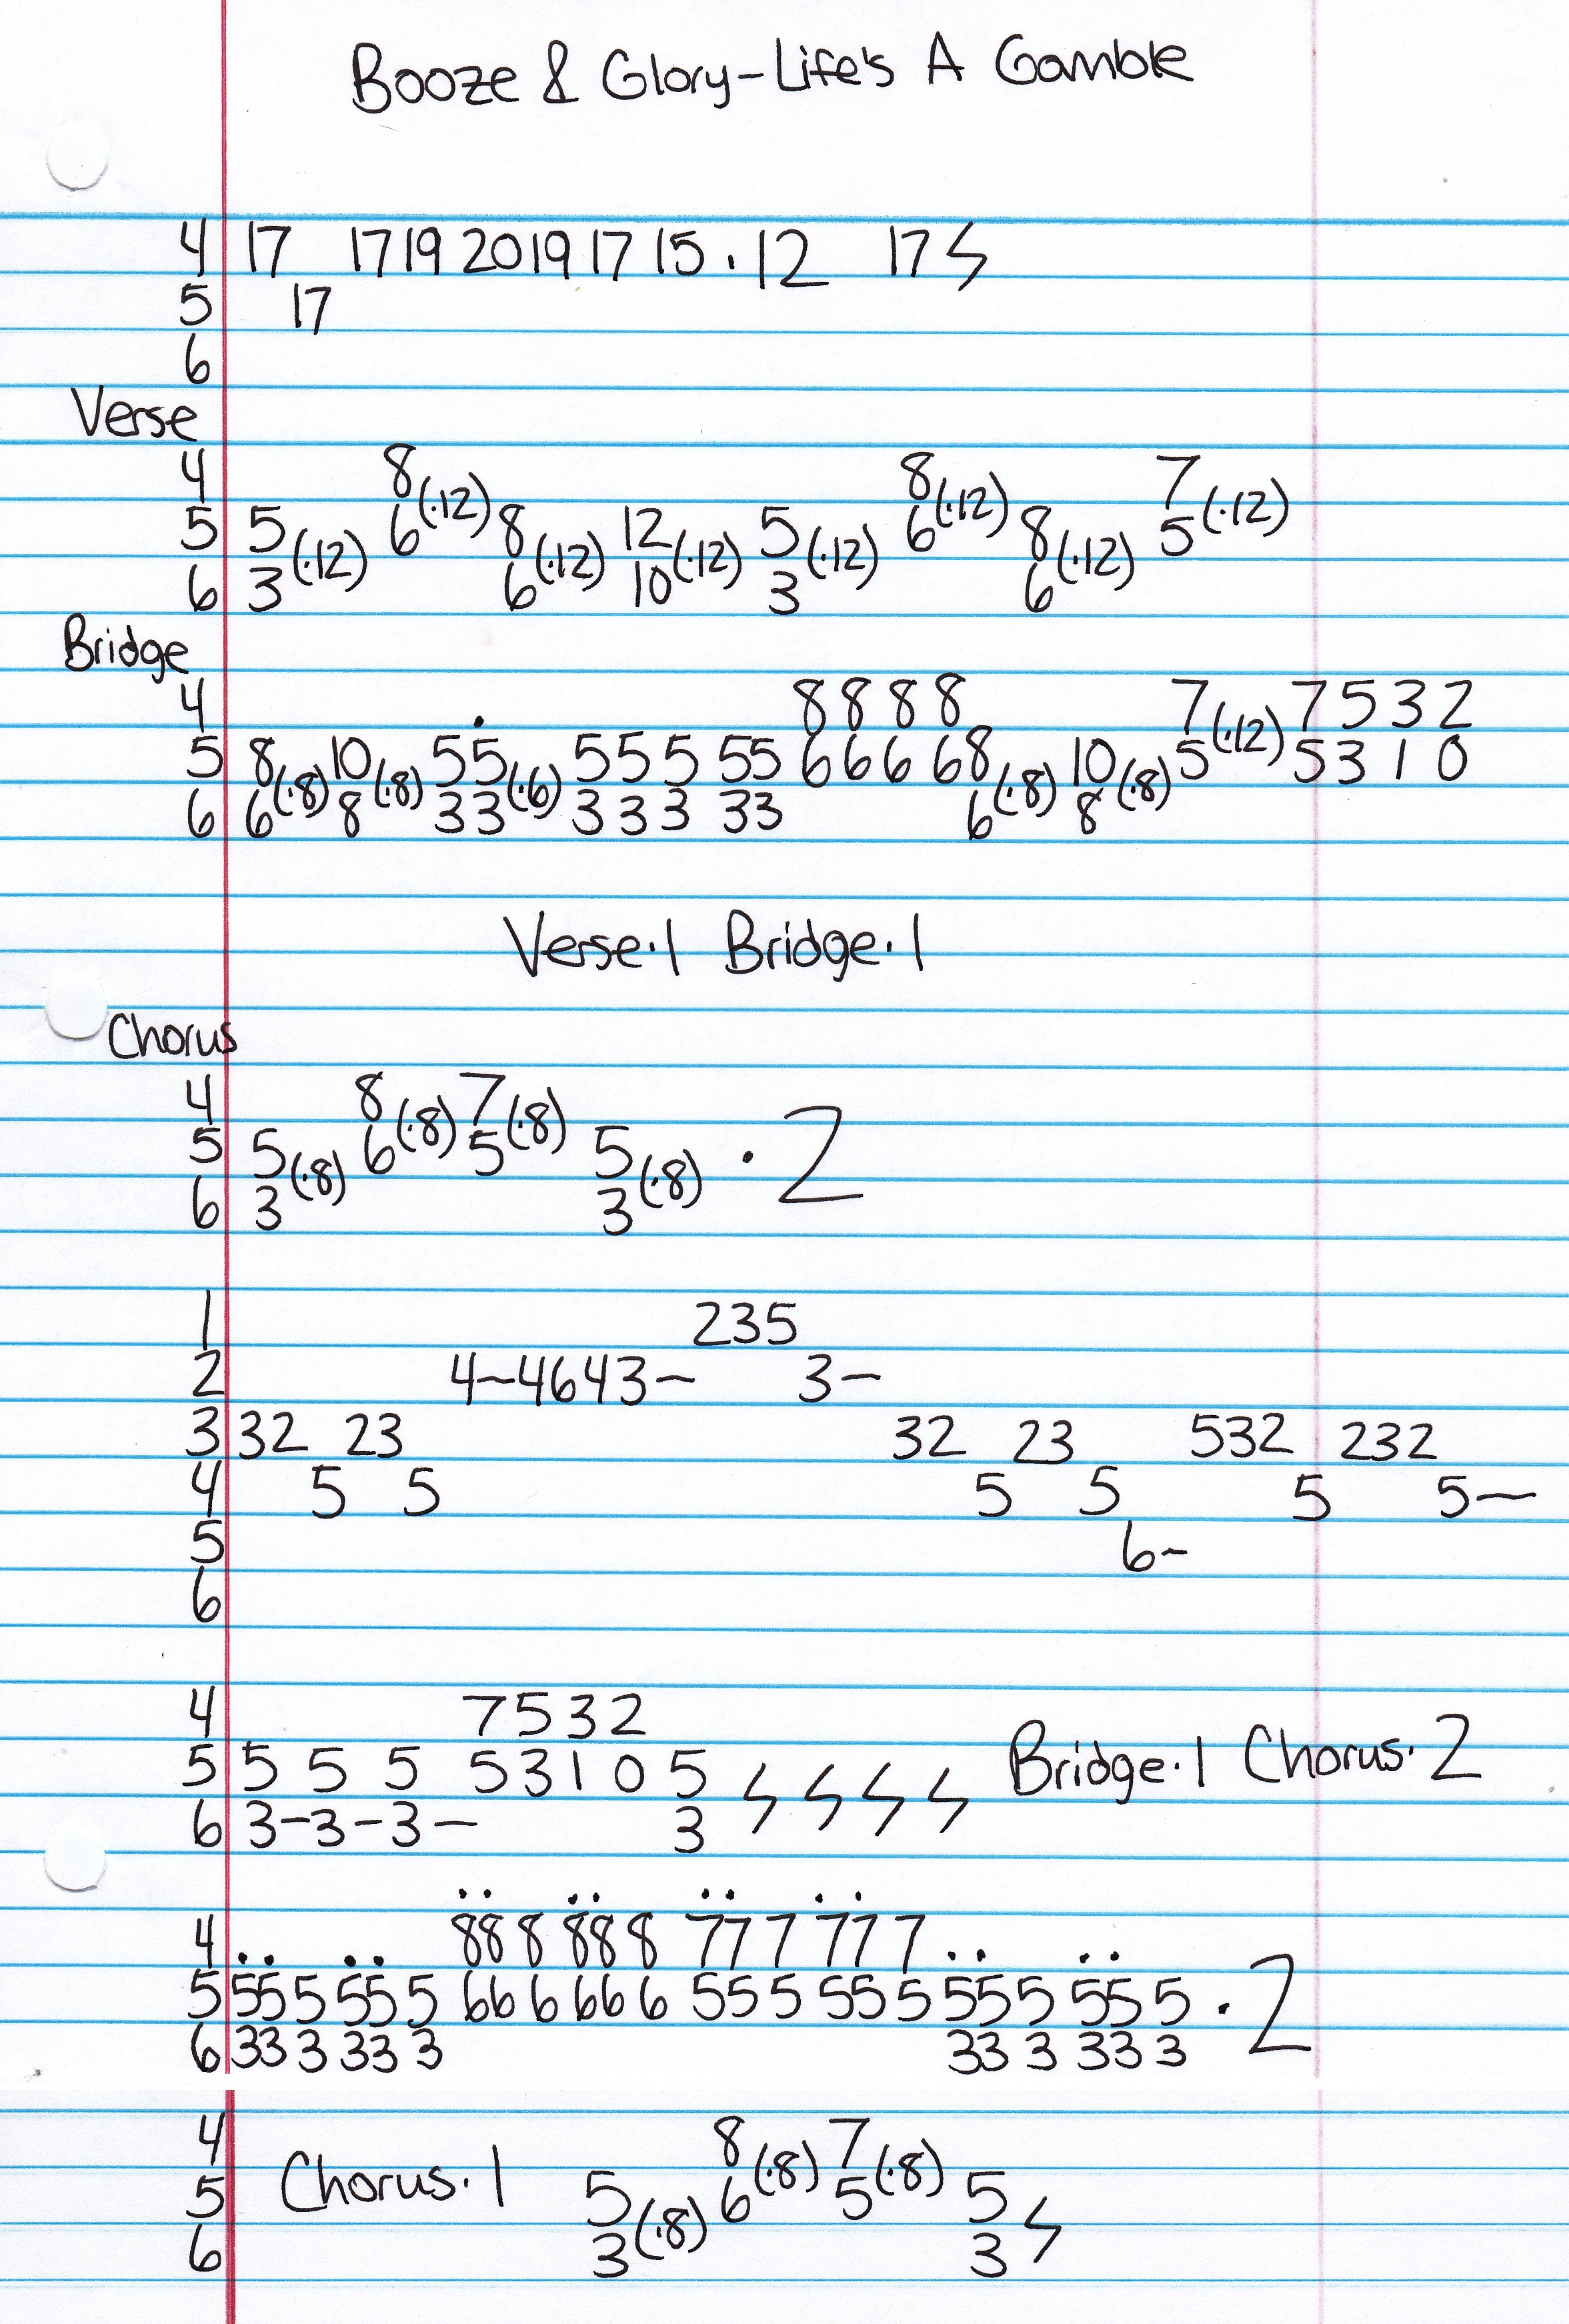 Booze & Glory-Life's A Gamble
4 17 17 19 20 19 17 15 · 12 17 ϟ
5 17
6
Verse
4 8 8 7
5 5 6 (·12) 8 12 5 6 (·12) 8 5 (·12)
6 3 (·12) 6 (·12) 10 (·12) 3 (·12) 6 (·12)
Bridge
4 8 8 8 8 7 7 5 3 2
5 8 10 5 5 5 5 5 5 5 6 6 6 6 8 10 5 (·12) 5 3 1 0
6 6 (·8) 8 (·8) 3 3 (·6) 3 3 3 3 3 6 (·8) 8 (·8)
Verse·1 Bridge·1
Chorus
4 8 7
5 5 6 (·8) 5 (·8) 5 · 2
6 3 (·8) 3 (·8)
1 235
2 4~4643~ 3~
3 32 23 32 23 532 232
4 5 5 5 5 5 5~
5 6~
6
4 7 5 3 2
5 5 5 5 5 3 1 0 5 ϟ ϟ ϟ ϟ Bridge·1 Chorus·2
6 3-3-3- 3
4 88 8 88 8 77 7 77 7
5 55 5 55 5 66 6 66 6 55 5 55 5 55 5 55 5 · 2
6 33 3 33 3 33 3 33 3
4 8 7
5 Chorus·1 5 6 (·8) 5 (·8) 5
6 3 (·8) 3 ϟ